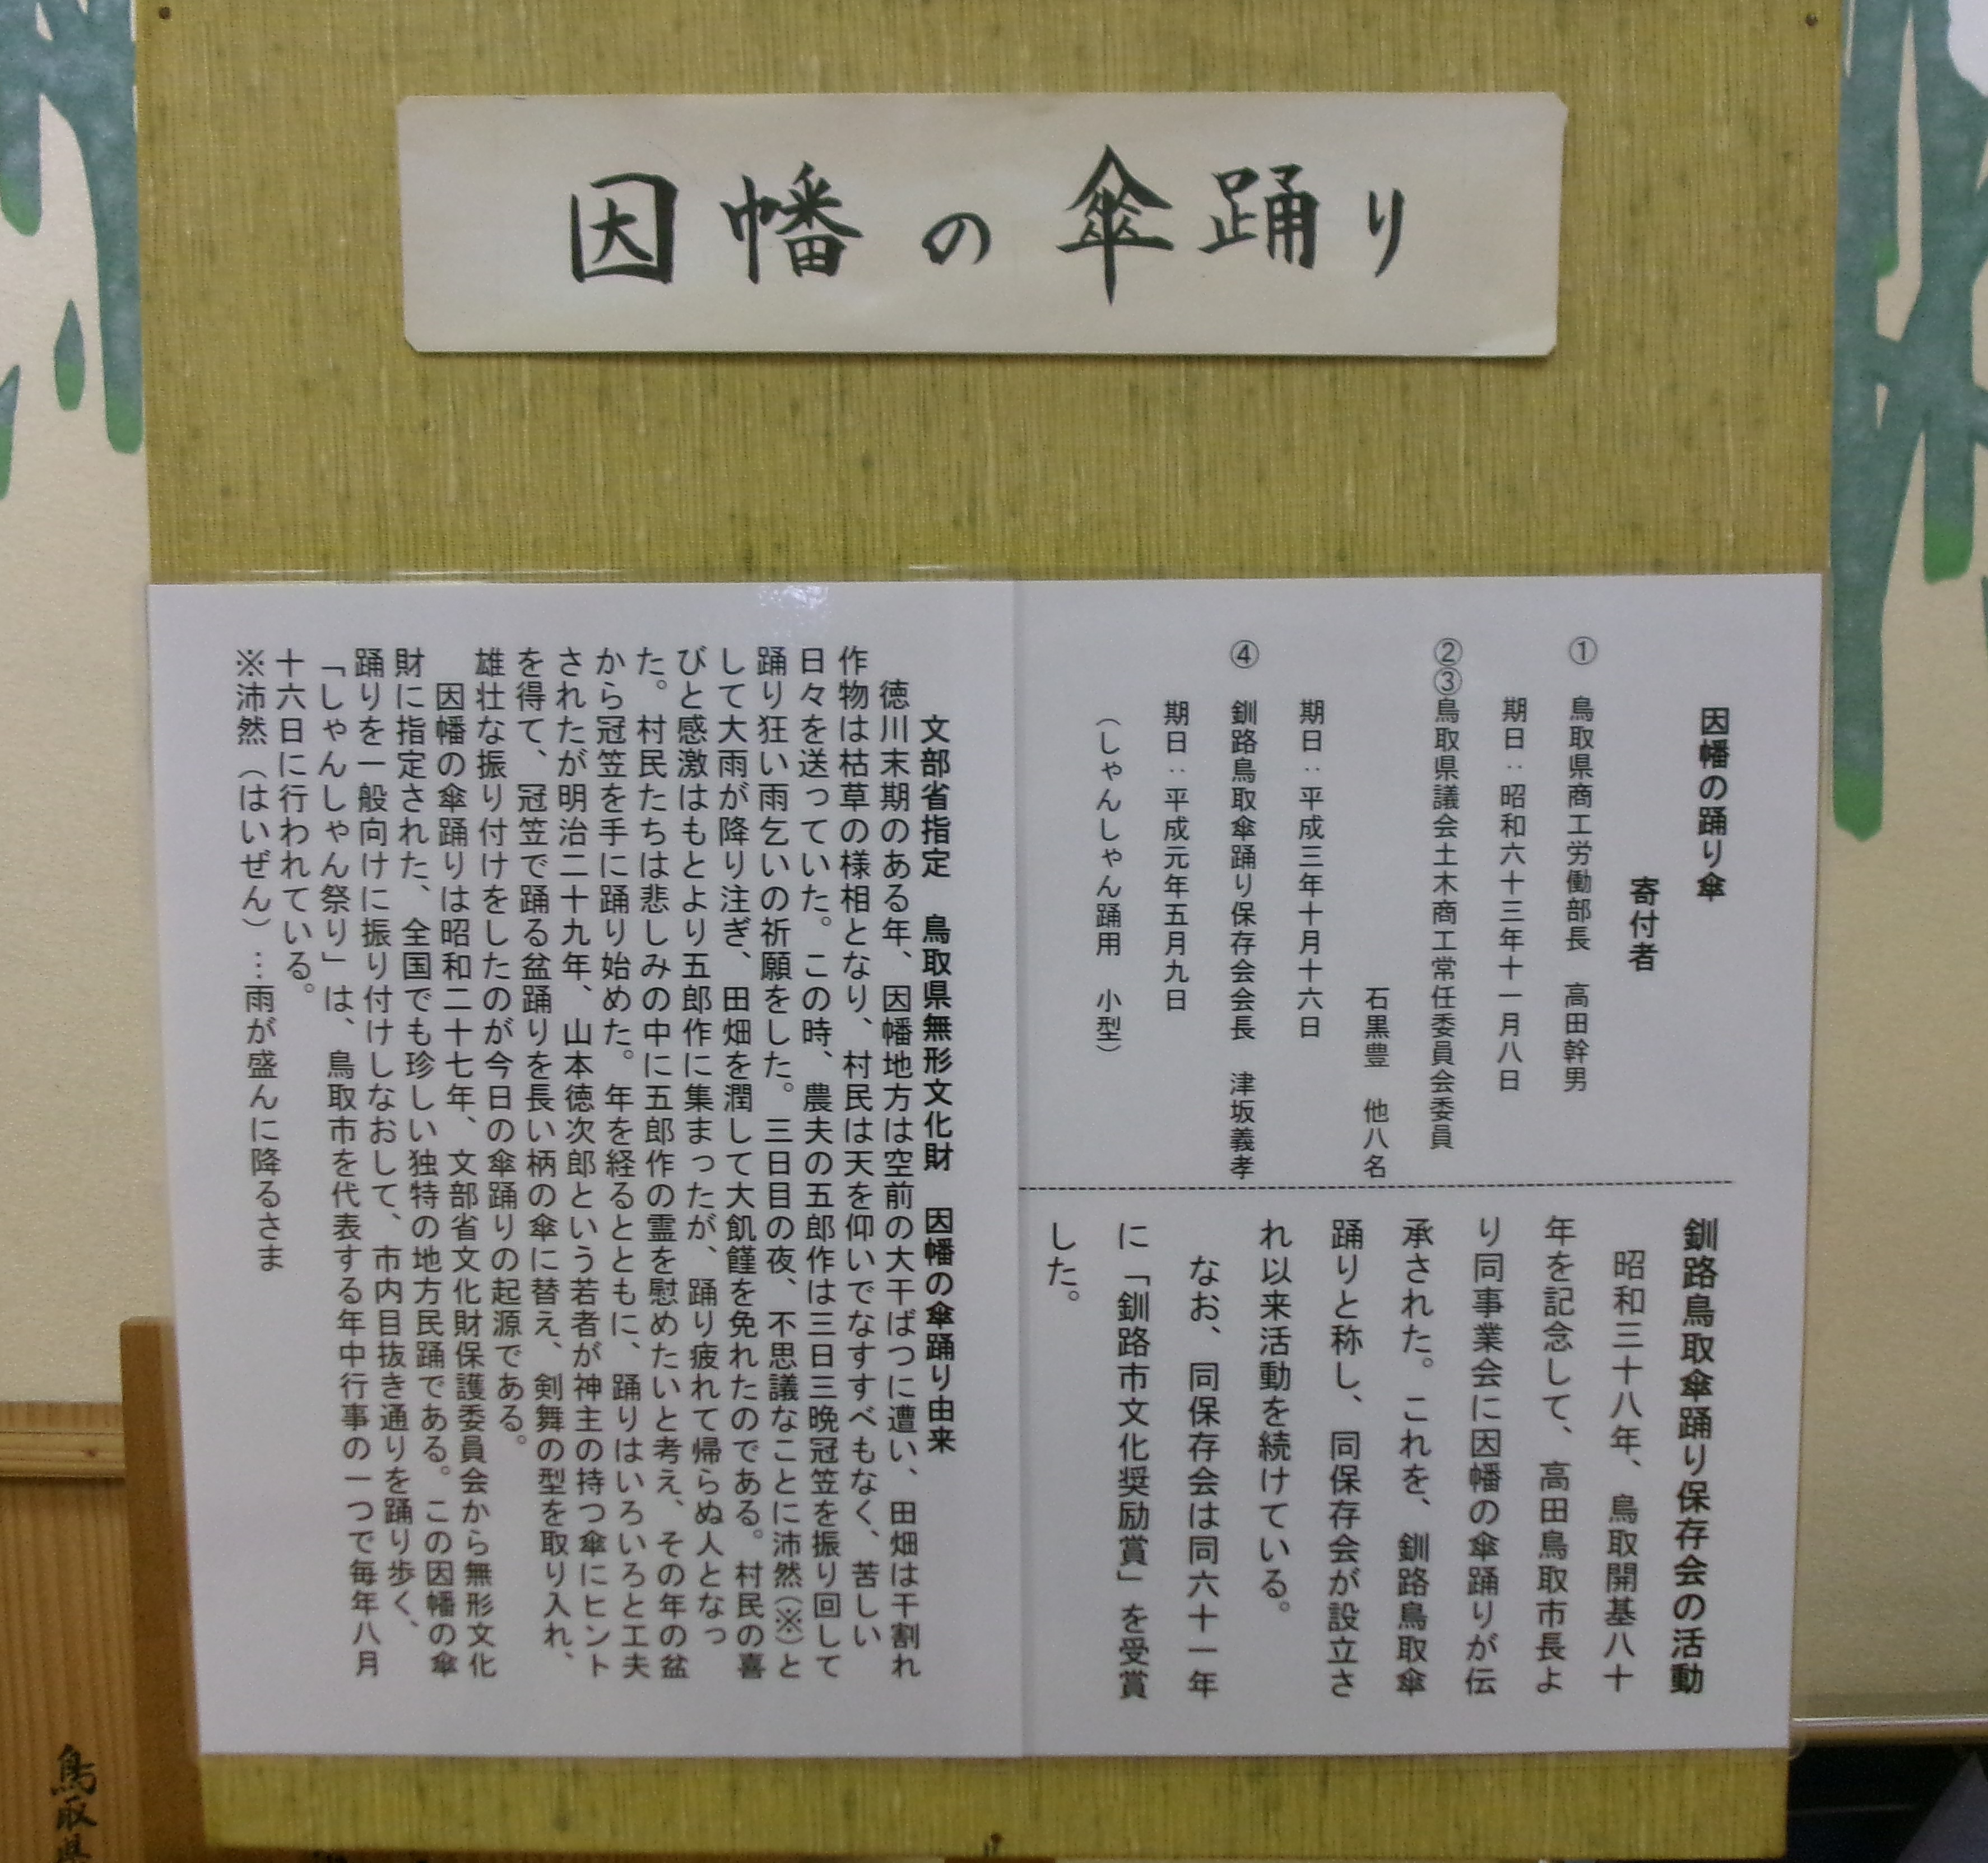 因幡の傘踊り
因幡の踊り傘
寄付者
① 鳥取県商工労働部長 高田幹男
期日：昭和六十三年十一月八日
②③鳥取県議会土木商工常任委員会委員
石黒豊 他八名
期日：平成三年十月十六日
④ 釧路鳥取傘踊り保存会会長 津坂義孝
期日：平成元年五月九日
（しゃんしゃん踊用 小型）
釧路鳥取傘踊り保存会の活動
昭和三十八年、鳥取開基八十
年を記念して、高田鳥取市長よ
り同事業会に因幡の傘踊りが伝
承された。これを、釧路鳥取傘
踊りと称し、同保存会が設立さ
れ以来活動を続けている。
なお、同保存会は同六十一年
に「釧路市文化奨励賞」を受賞
した。
文部省指定 鳥取県無形文化財 因幡の傘踊り由来
徳川末期のある年、因幡地方は空前の大干ばつに遭い、田畑は干割れ
作物は枯草の様相となり、村民は天を仰いでなすすべもなく、苦しい
日々を送っていた。この時、農夫の五郎作は三日三晩冠笠を振り回して
踊り狂い雨乞いの祈願をした。三日目の夜、不思議なことに沛然（※）と
して大雨が降り注ぎ、田畑を潤して大飢饉を免れたのである。村民の喜
びと感激はもとより五郎作に集まったが、踊り疲れて帰らぬ人となっ
た。村民たちは悲しみの中に五郎作の霊を慰めたいと考え、その年の盆
から冠笠を手に踊り始めた。年を経るとともに、踊りはいろいろと工夫
されたが明治二十九年、山本徳次郎という若者が神主の持つ傘にヒント
を得て、冠笠で踊る盆踊りを長い柄の傘に替え、剣舞の型を取り入れ、
雄壮な振り付けをしたのが今日の傘踊りの起源である。
因幡の傘踊りは昭和二十七年、文部省文化財保護委員会から無形文化
財に指定された、全国でも珍しい独特の地方民踊である。この因幡の傘
踊りを一般向けに振り付けしなおして、市内目抜き通りを踊り歩く、
「しゃんしゃん祭り」は、鳥取市を代表する年中行事の一つで毎年八月
十六日に行われている。
※沛然（はいぜん）…雨が盛んに降るさま
鳥取県